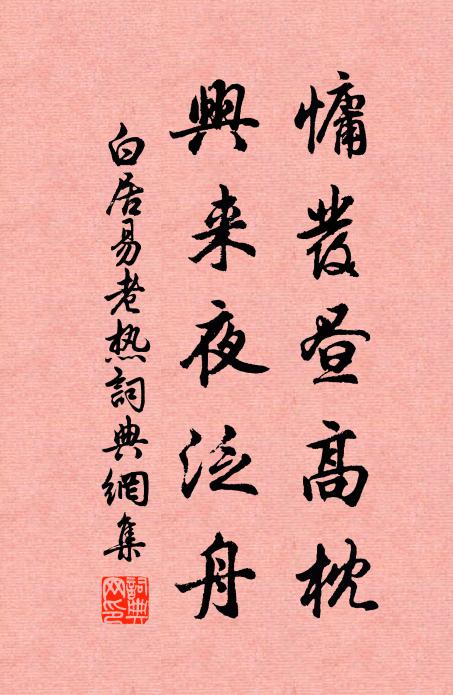 慵發晝高枕
興来夜泛舟
白居易老热詞典網集
詞典網印